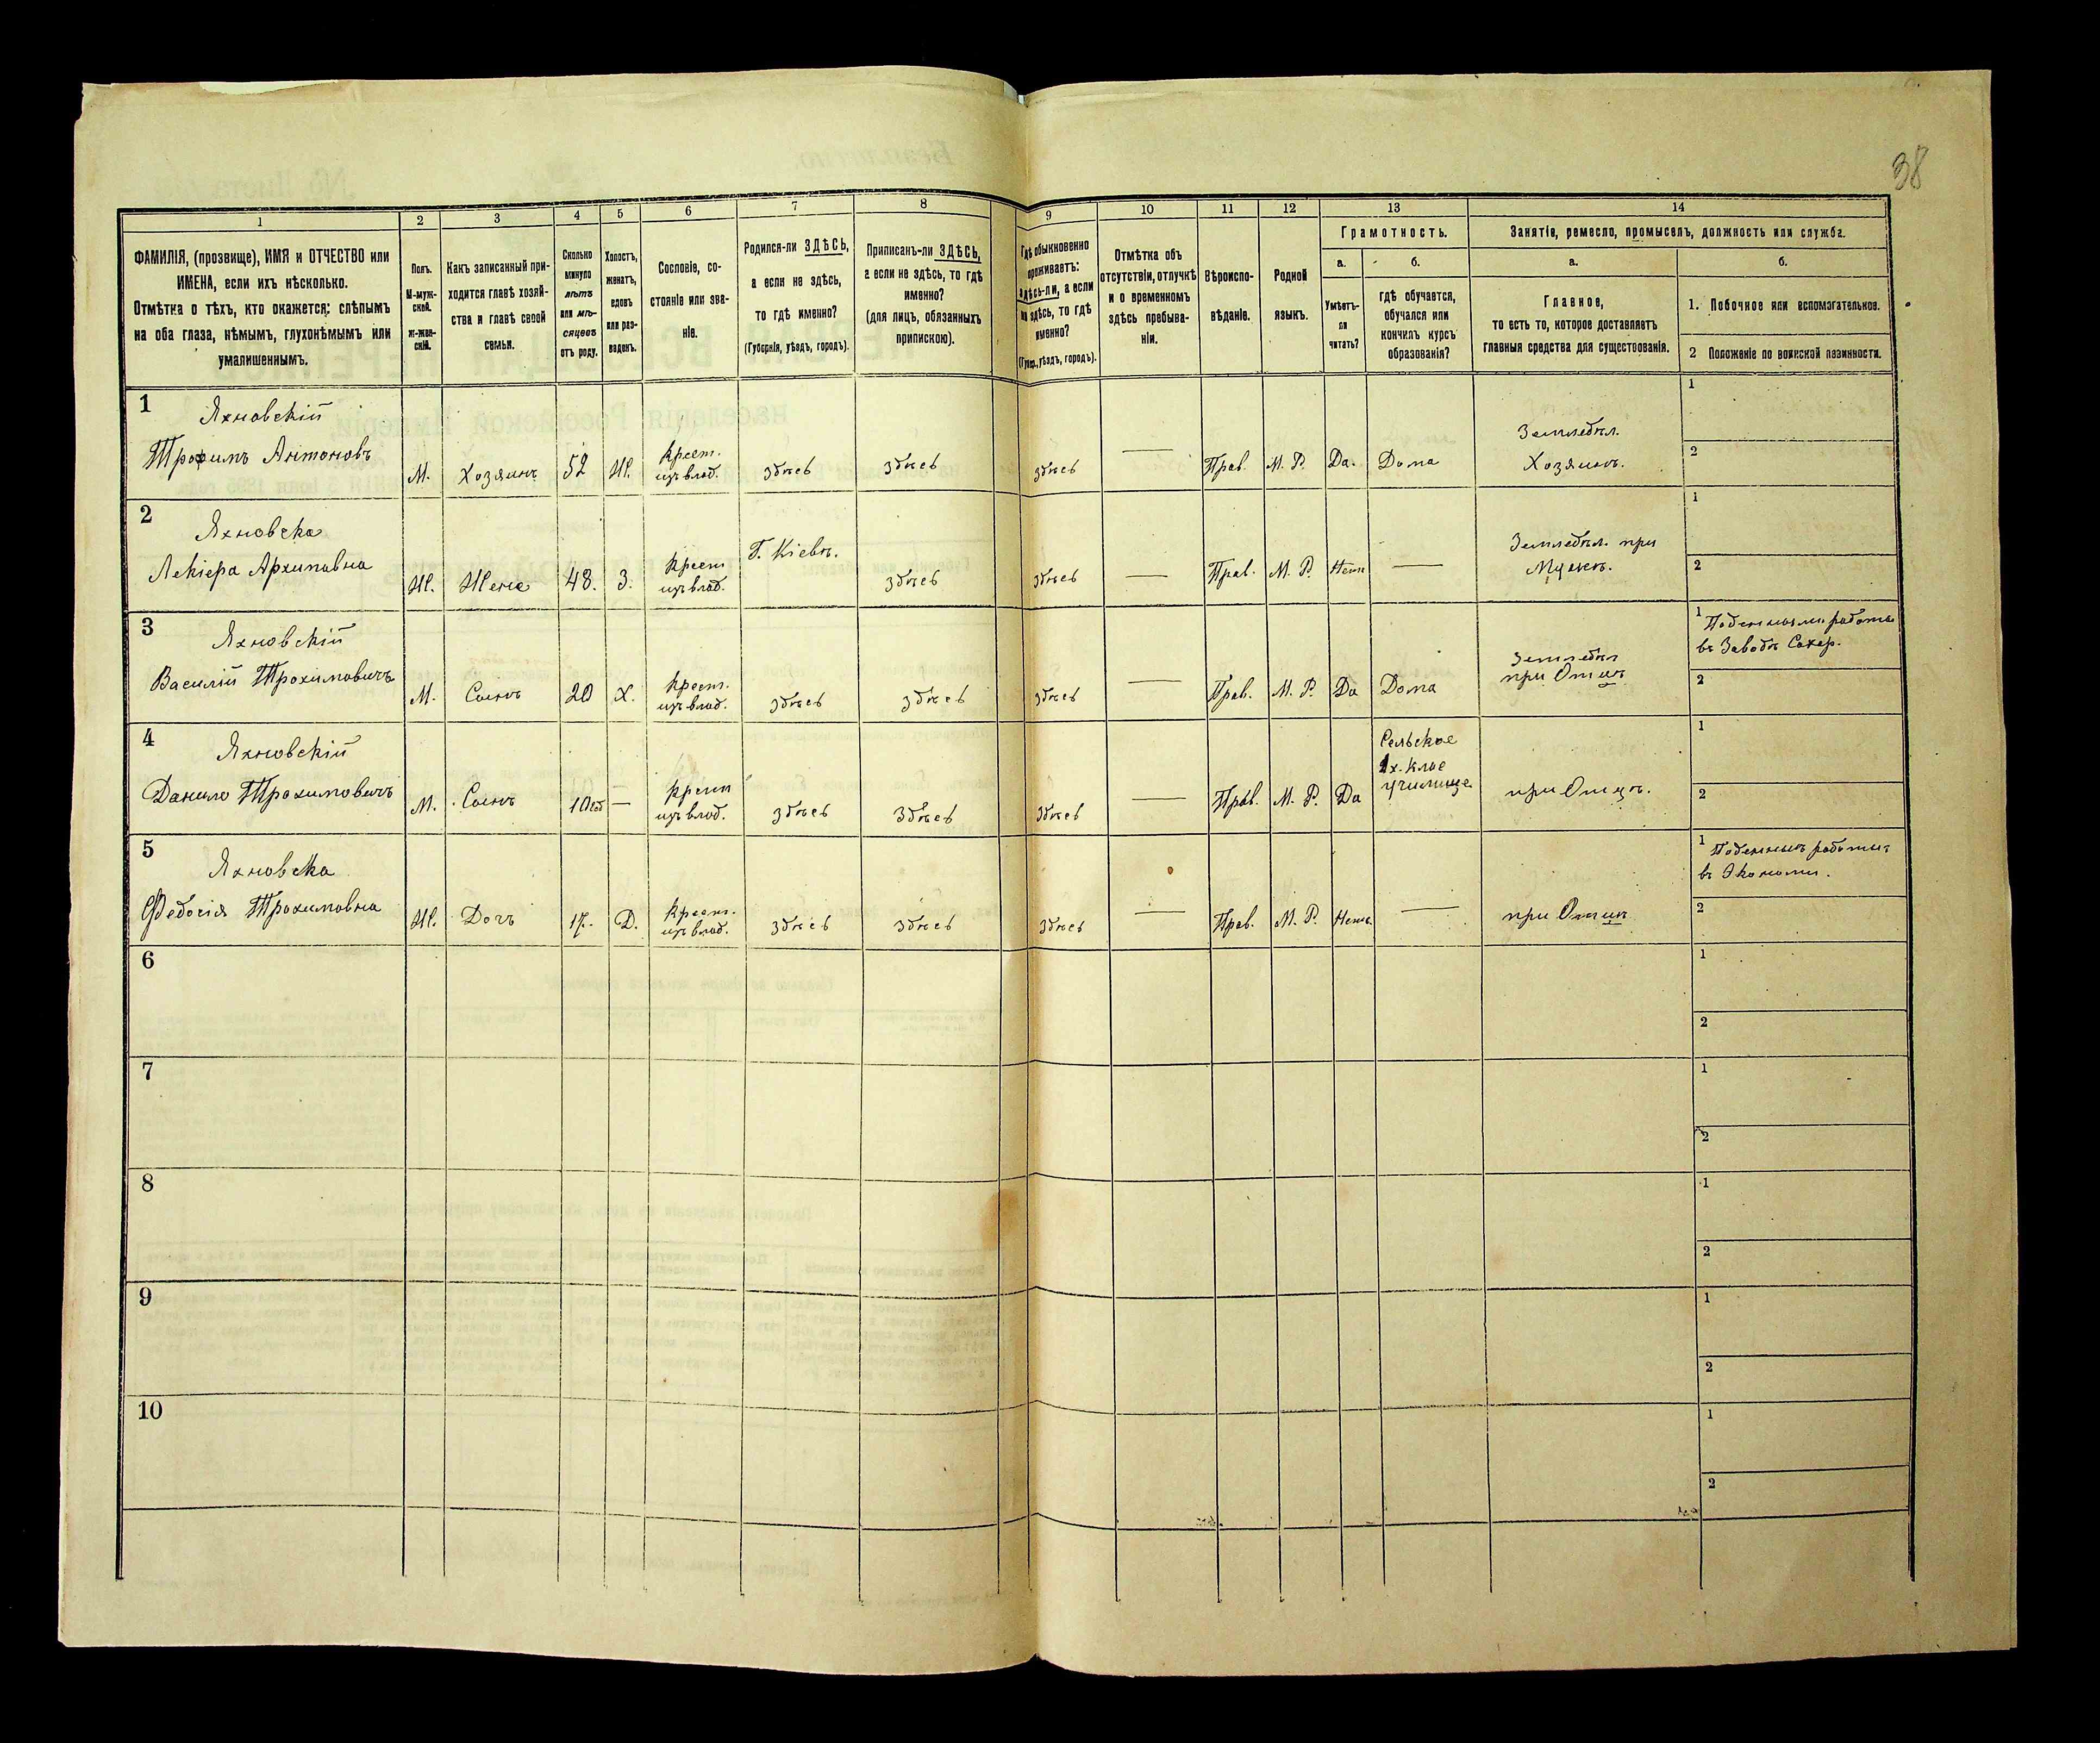 38
1
2
3
4
5
6
7
8
9
10
11
12
13
14
ФАМИЛІЯ, (прозвище), ИМЯ и ОТЧЕСТВО или
ИМЕНА, если ихъ нѣсколько.
Отмѣтка о тѣхъ, кто окажется: слѣпымъ
на оба глаза, нѣмымъ, глухонѣмымъ или
умалишеннымъ.
Полъ.
М-муж-
ской.
ж-жен-
скій.
Какъ записанный при-
ходится главѣ хозяй-
ства и главѣ своей
семьи.
Сколько
минуло
лѣтъ
или мѣ-
сяцевъ
отъ роду.
Холостъ,
женатъ,
вдовъ
или раз-
веденъ.
Сословіе, со-
стояніе или зва-
ніе.
Родился-ли ЗДѢСЬ,
а если не здѣсь,
то гдѣ именно?
(Губернія, уѣздъ, городъ).
Приписанъ-ли ЗДѢСЬ,
а если не здѣсь, то гдѣ
именно?
(для лицъ, обязанныхъ
припискою).
Гдѣ обыкновенно
проживаетъ:
здѣсь-ли, а если
не здѣсь, то гдѣ
именно?
(Губер., уѣздъ, городъ).
Отмѣтка объ
отсутствіи, отлучкѣ
и о временномъ
здѣсь пребыва-
ніи.
Вѣроиспо-
вѣданіе.
Родной
языкъ.
Грамотность.
а.
б.
Умѣетъ-
ли
читать?
гдѣ обучается,
обучался или
кончилъ курсъ
образованія?
Занятіе, ремесло, промыселъ, должность или служба.
а.
б.
Главное,
то есть то, которое доставляетъ
главныя средства для существованія.
1. Побочное или вспомогательное.
2 Положеніе по воинской повинности.
1
Яхновскій
Трохимъ Антоновъ
М.
Хозяинъ
52
Ж.
Крест.
изъ влад.
здѣсь
здѣсь
здѣсь
—
Прав.
М. Р.
Да.
Дома
Земледѣл.
Хозяинъ.
1
2
2
Яхновска
Архиповна
Ж.
Жена
48.
З.
Крест
изъ влад.
Г. Кіевъ.
здѣсь
здѣсь
—
Прав.
М. Р.
Нетъ
—
Земледѣл. при
Мужѣ.
1
2
3
Яхновскій
Василій Трохимовичъ
М.
Сынъ
20
Х.
Крест.
изъ влад.
здѣсь
здѣсь
здѣсь
—
Прав.
М. Р.
Да
Дома
Земледѣл
при Отцѣ
1
работы
въ Заводѣ Сахар.
2
4
Яхновскій
Данило Трохимовичъ
М.
Сынъ
10
—
Крест
изъ влад.
здѣсь
здѣсь
здѣсь
—
Прав.
М. Р.
Да
Сельское
1х. клас
училище
при Отцѣ.
1
2
5
Яхновска
Федосія Трохимовна
Ж.
Дочъ
17.
Д.
Крест.
изъ влад.
здѣсь
здѣсь
здѣсь
—
Прав.
М. Р.
Нетъ
—
при Отцѣ
1
работы
въ Экономи.
2
6
1
2
7
1
2
8
1
2
9
1
2
10
1
2